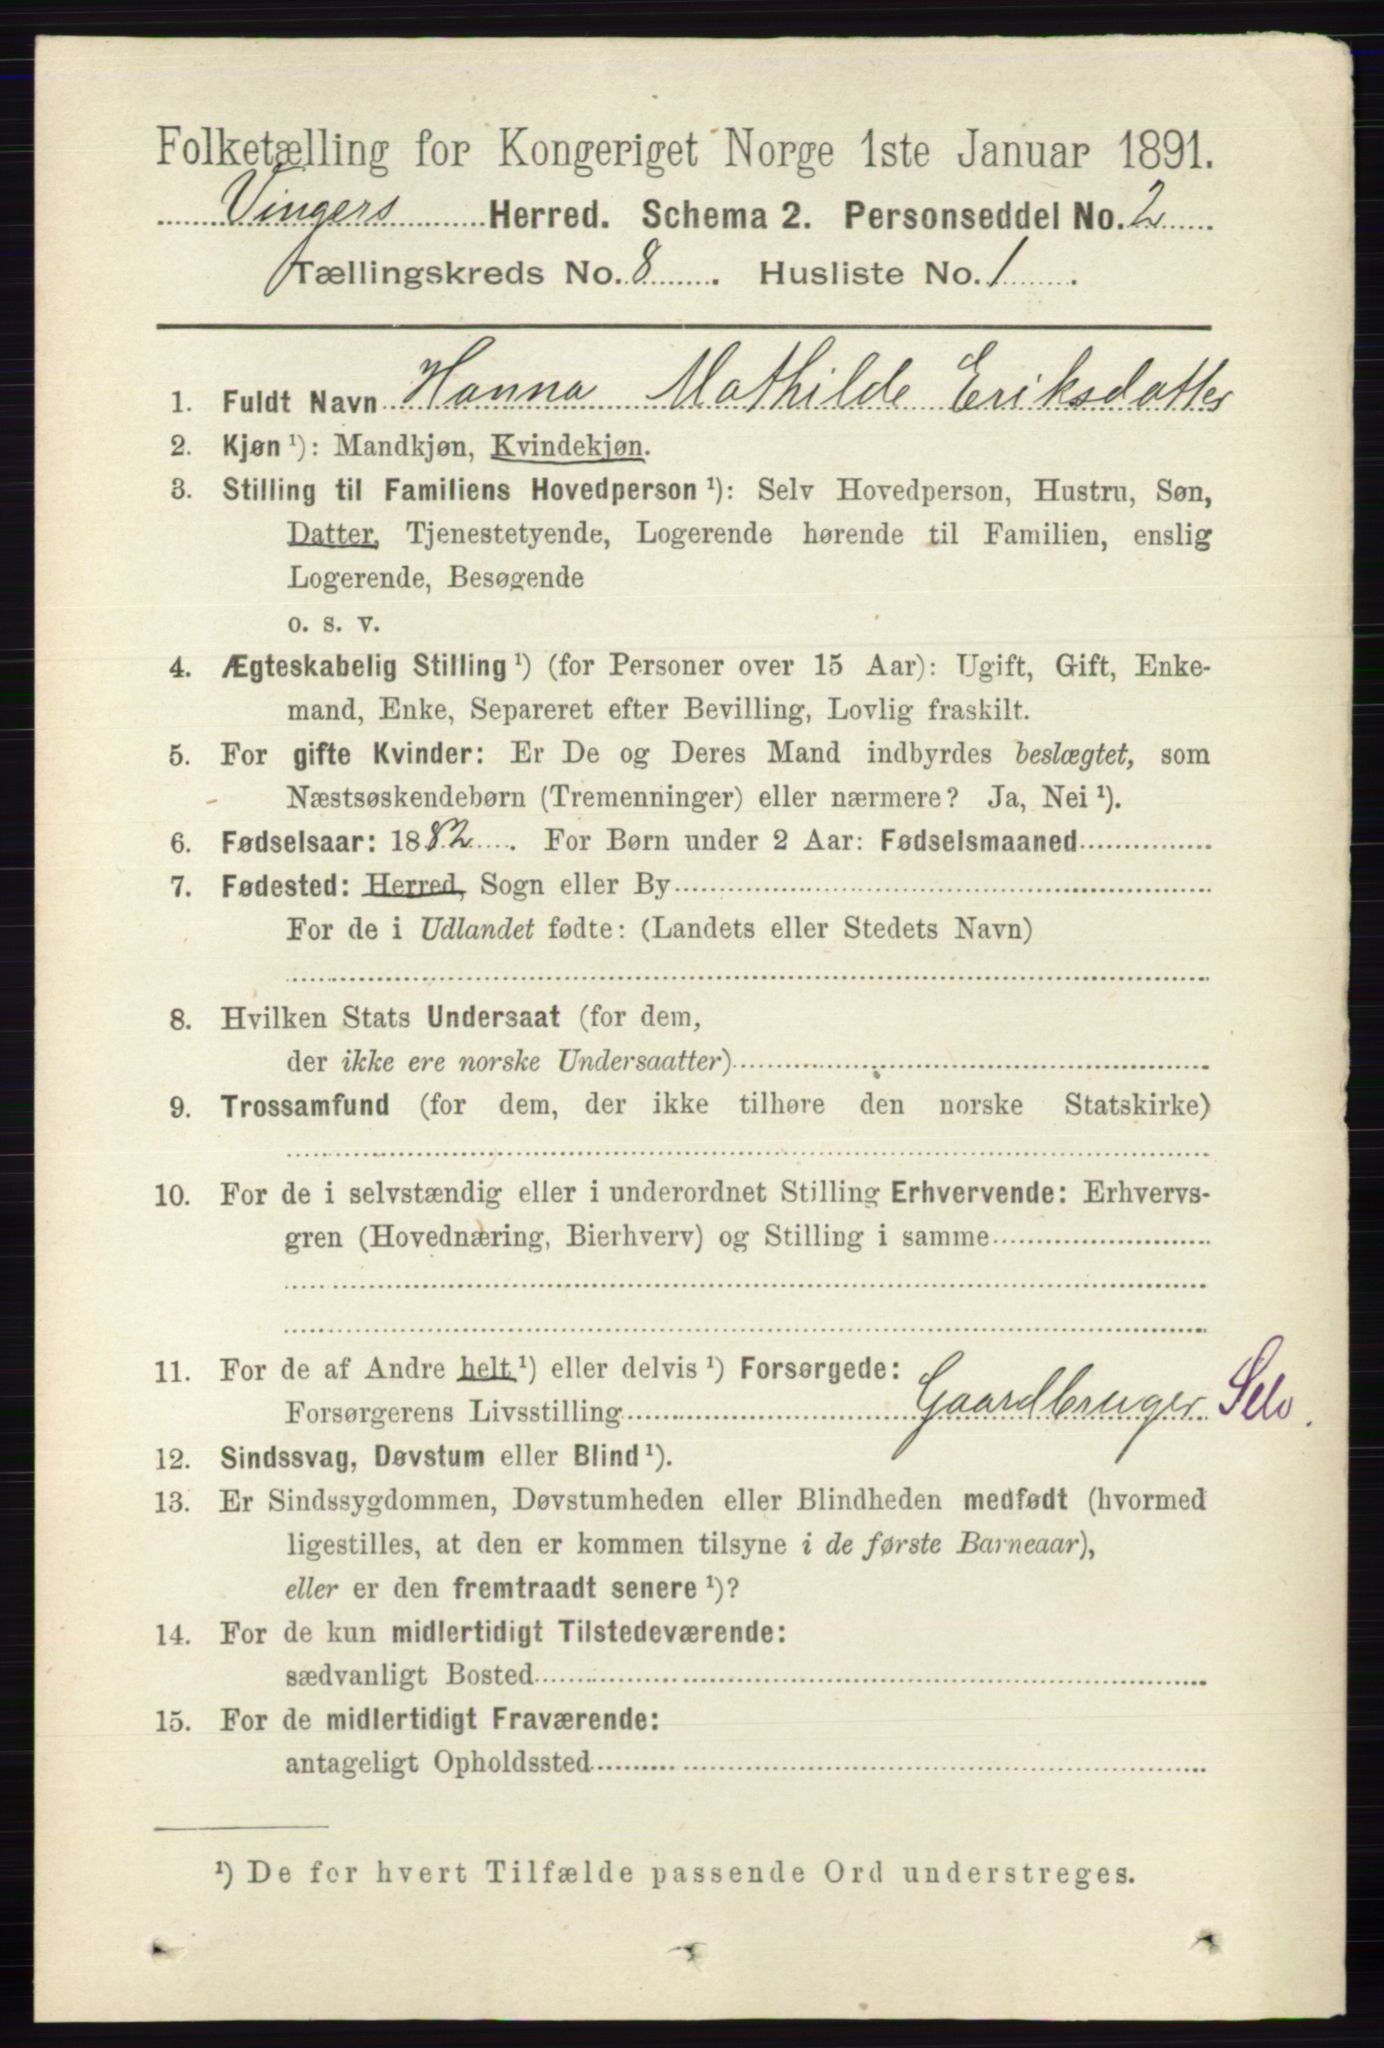 Folketælling for Kongeriget Norge 1ste Januar 1891.
Vingers Herred. Schema 2. Personseddel No. 2
Tællingskreds No. 8. Husliste No. 1.
1. Fuldt Navn Hanna Mathilde Eriksdatter
2. Kjøn ¹): Mandkjøn, Kvindekjøn.
3. Stilling til Familiens Hovedperson ¹): Selv Hovedperson, Hustru, Søn,
Datter, Tjenestetyende, Logerende hørende til Familien, enslig
Logerende, Besøgende
o. s. v.
4. Ægteskabelig Stilling ¹) (for Personer over 15 Aar): Ugift, Gift, Enke-
mand, Enke, Separeret efter Bevilling, Lovlig fraskilt.
5. For gifte Kvinder: Er De og Deres Mand indbyrdes beslægtet, som
Næstsøskendebørn (Tremenninger) eller nærmere? Ja, Nei ¹).
6. Fødselsaar: 1882. For Børn under 2 Aar: Fødselsmaaned
7. Fødested: Herred, Sogn eller By
For de i Udlandet fødte: (Landets eller Stedets Navn)
8. Hvilken Stats Undersaat (for dem,
der ikke ere norske Undersaatter)
9. Trossamfund (for dem, der ikke tilhøre den norske Statskirke)
10. For de i selvstændig eller i underordnet Stilling Erhvervende: Erhvervs-
gren (Hovednæring, Bierhverv) og Stilling i samme
11. For de af Andre helt ¹) eller delvis ¹) Forsørgede:
Forsørgerens Livsstilling Gaardbruger Selv.
12. Sindssvag, Døvstum eller Blind ¹).
13. Er Sindssygdommen, Døvstumheden eller Blindheden medfødt (hvormed
ligestilles, at den er kommen tilsyne i de første Barneaar),
eller er den fremtraadt senere ¹)?
14. For de kun midlertidigt Tilstedeværende:
sædvanligt Bosted
15. For de midlertidigt Fraværende:
antageligt Opholdssted
¹) De for hvert Tilfælde passende Ord understreges.